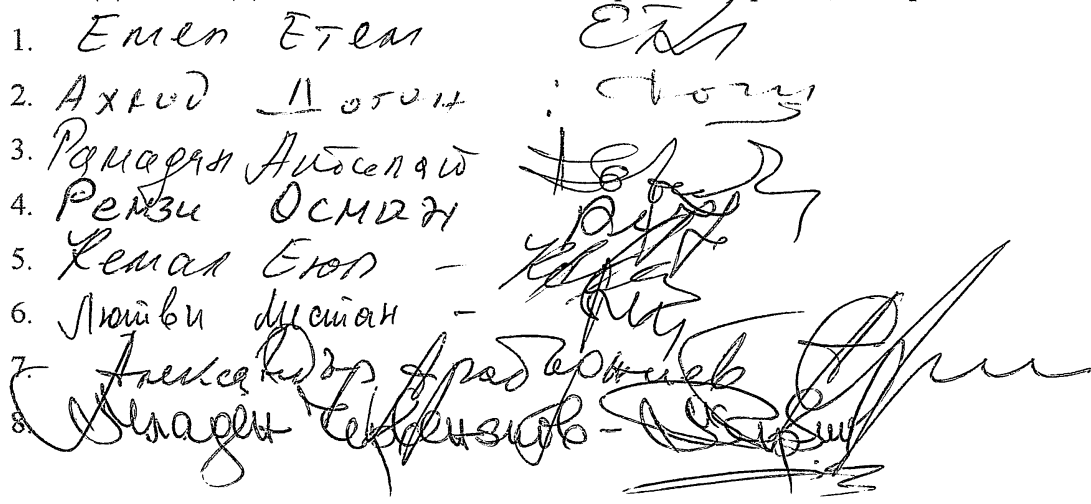 1. Емел Етем
2. Ахмед Доган :
3. Рамадан Аталай
4. Рамзи Осман
5. Кемал Еюп -
6. Лютви Местан -
7. Александър Арабаджиев
8. Младен Червеняков -